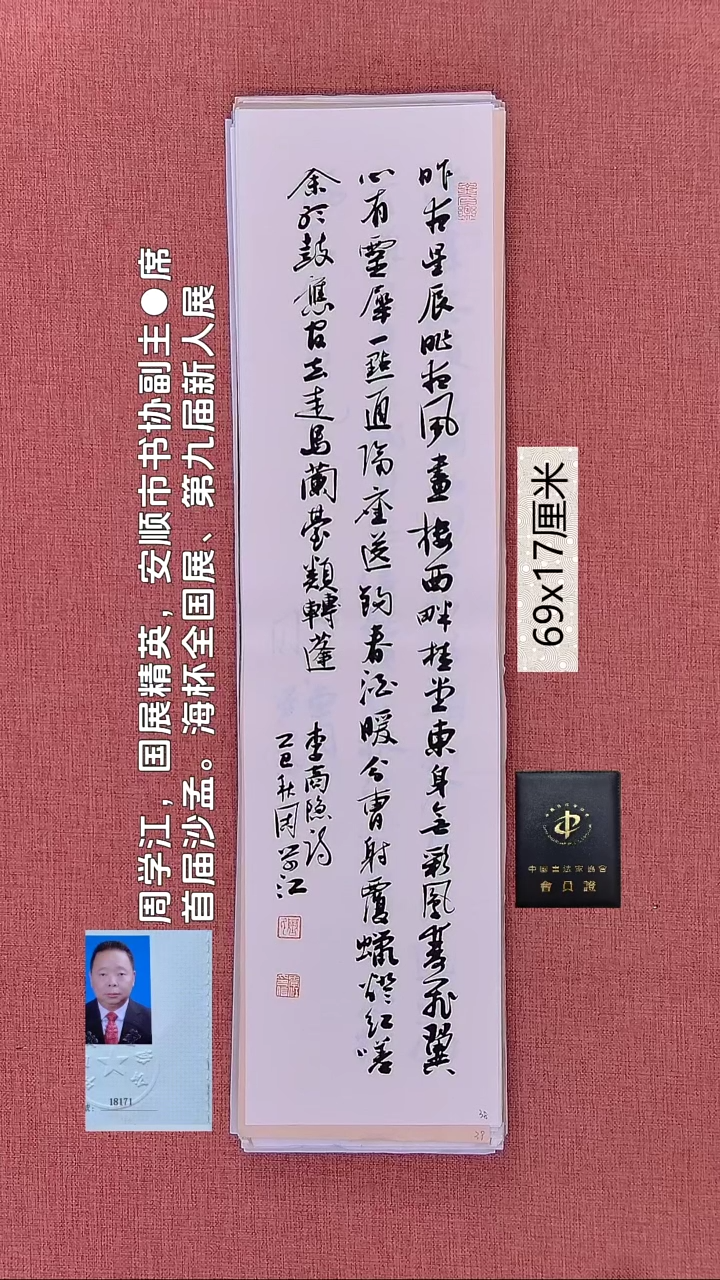 昨夜星辰昨夜風畫樓西畔桂堂東身無彩鳳雙飛翼
心有靈犀一點通隔座送鉤春酒暖分曹射覆蠟燈紅嗟
余聽鼓應官去走馬蘭臺類轉蓬
李商隐诗
乙巳秋周学江
周学江，国展精英，安顺市书协副主●席
首届沙孟。海杯全国展、第九届新人展
69x17厘米
會員證
18171
38